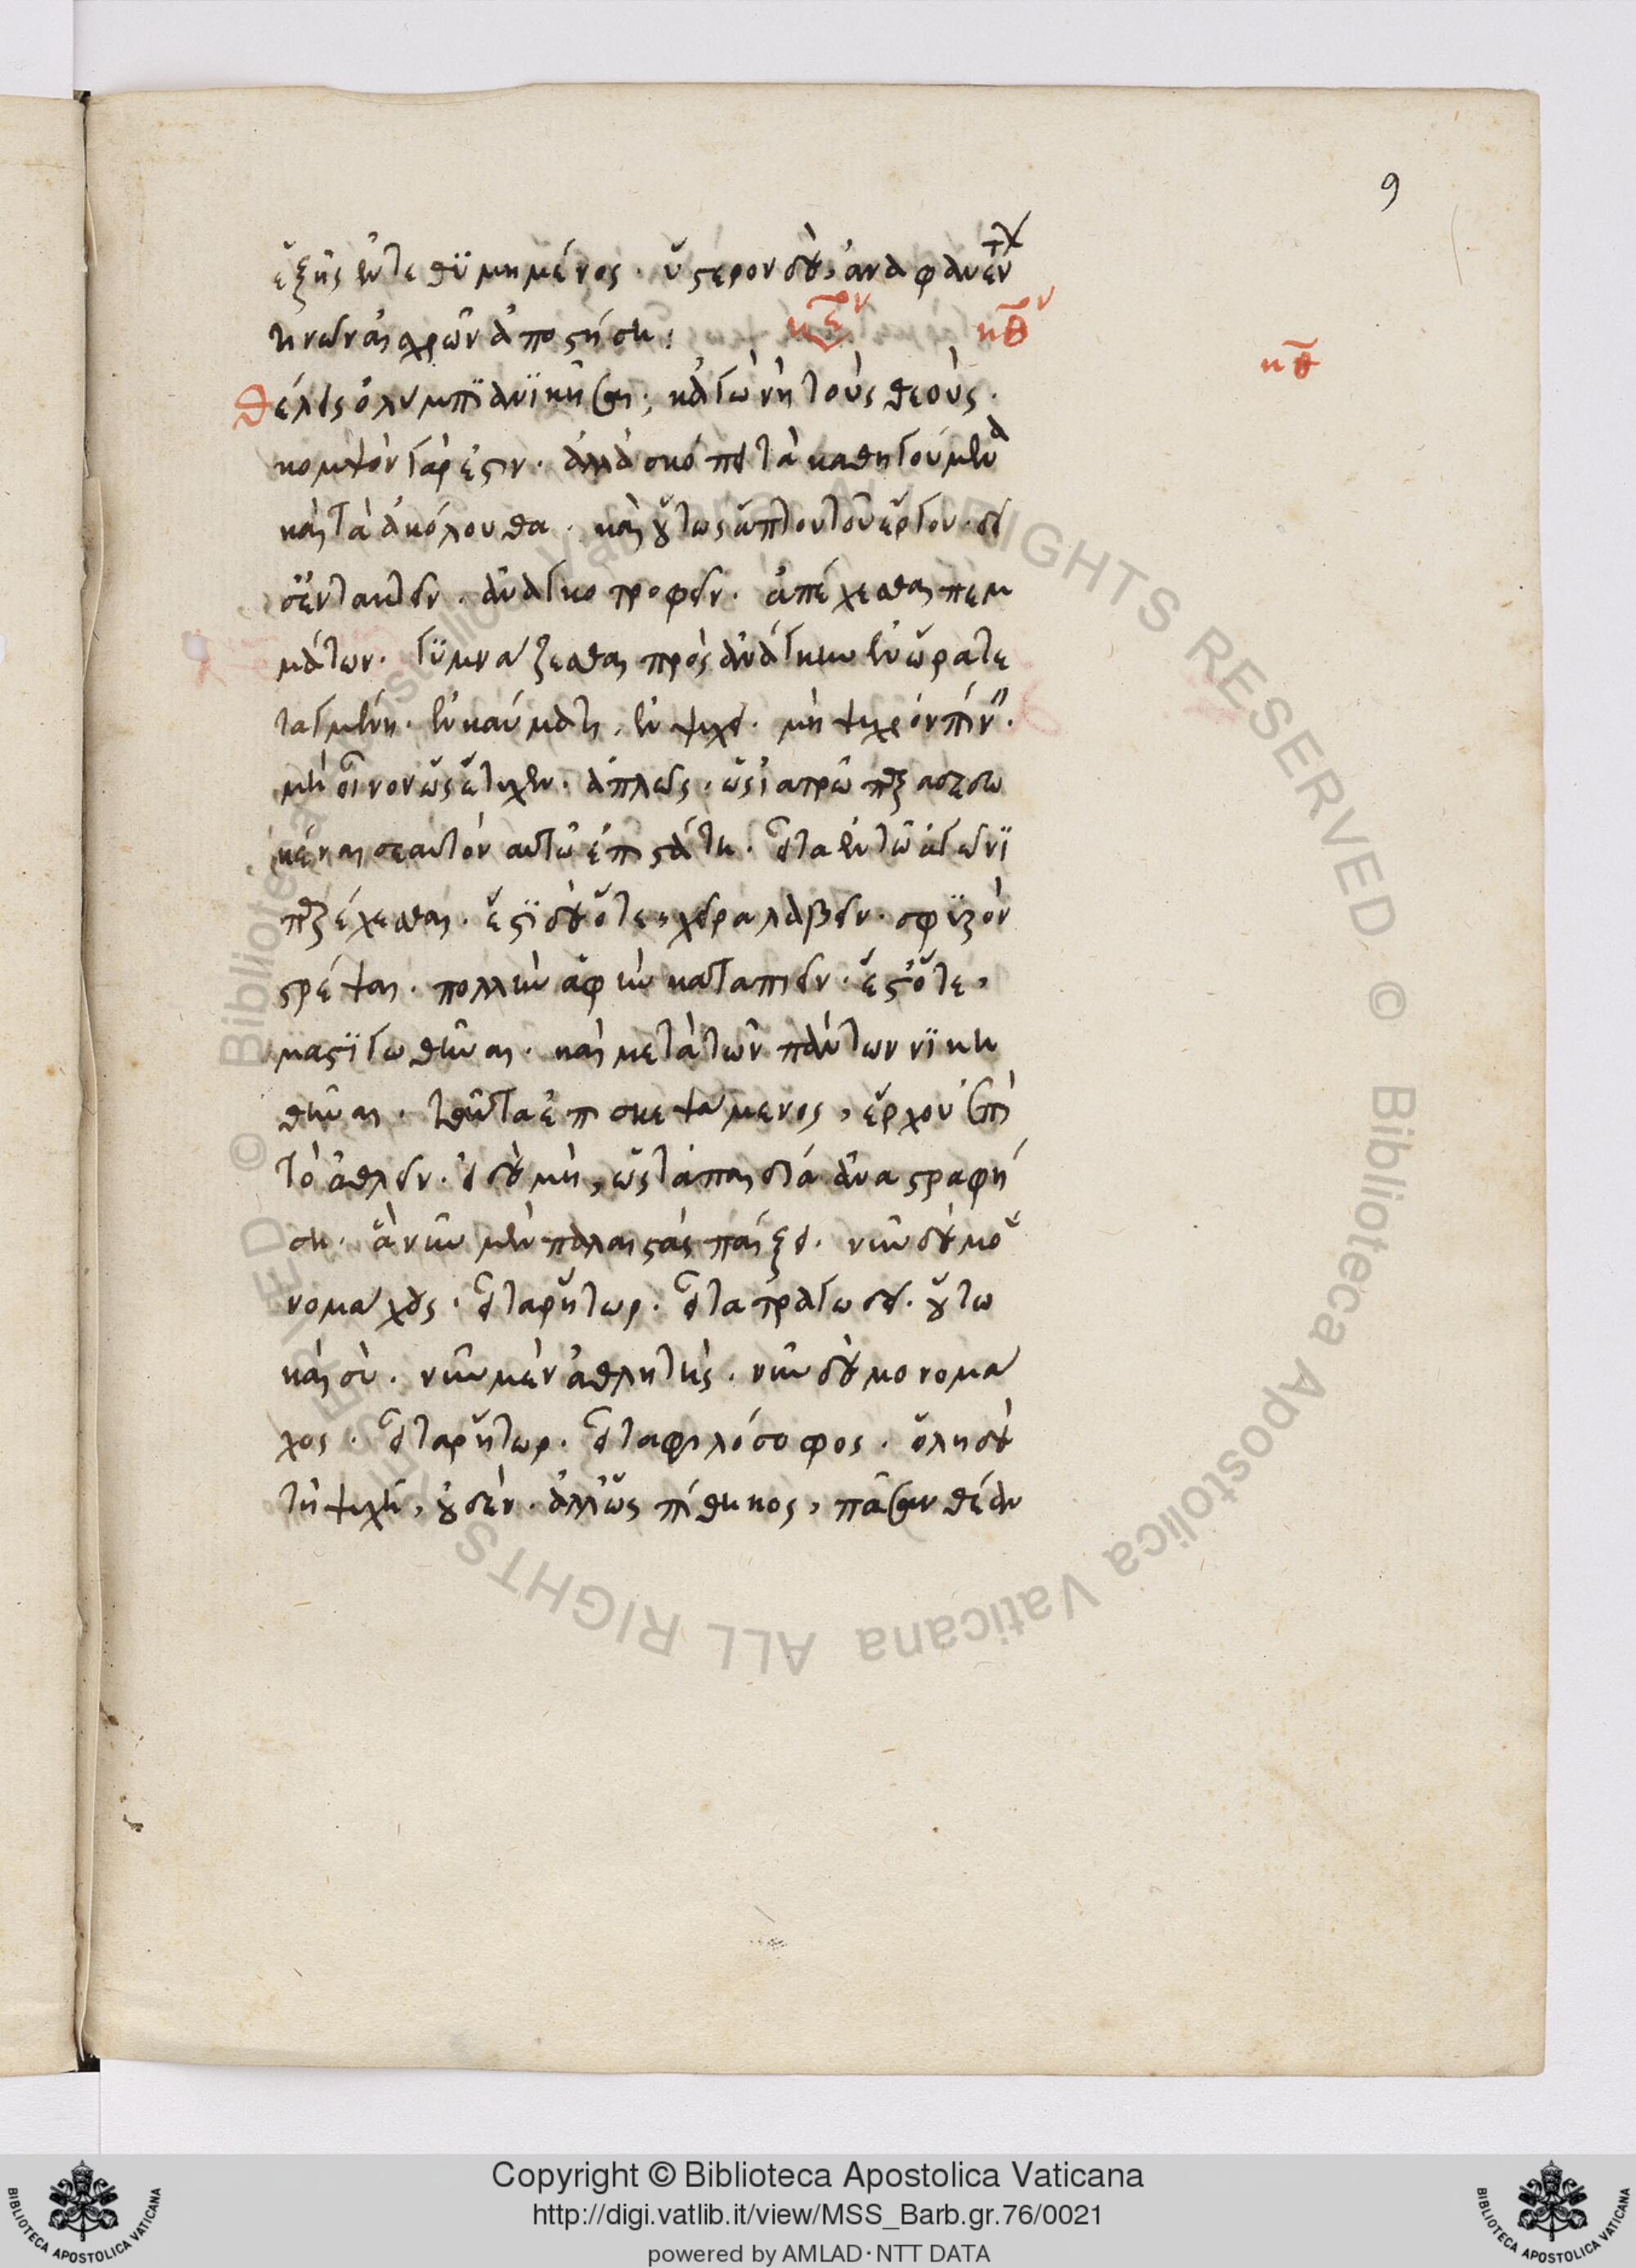 9
ἑξῆς ἐντεθυμημένος. ὕστερον δὲ, ἀναφανέντων
τινῶν αἰσχρῶν ἀποστήσῃ:
κξον κθον
κθ
Θέλεις ὀλύμπια νικῆσαι; κἀγὼ νὴ τοὺς θεούς.
κομψὸν γάρ ἐστιν. ἀλλὰ σκόπει τὰ καθηγούμενα
καὶ τὰ ἀκόλουθα. καὶ οὕτως ἅπτου τοῦ ἔργου. δεῖ
σ' εὐτακτεῖν. ἀναγκοτροφεῖν. ἀπέχεσθαι πεμ
μάτων. γυμνάζεσθαι πρὸς ἀνάγκην ἐν ὥρα τε
ταγμένη. ἐν καύματι, ἐν ψύχει. μὴ ψυχρὸν πίνειν.
μὴ οἶνον ὡς ἔτυχεν. ἁπλῶς. ὡς ἰατρῶ παραδεδω
κέναι σεαυτὸν αὐτῶ ἐπιστάτῃ. εἶτα ἐν τῶ ἀγῶνι
παρέρχεσθαι. ἔστι δὲ ὅτε, χεῖρα λαβεῖν. σφυρὸν
στρέψαι. πολλὴν ἀφὴν καταπιεῖν. ἔσθ' ὅτε,
μαστιγωθῆναι. καὶ μετὰ τῶν πάντων νικη
θῆναι. ταῦτα ἐπισκεψάμενος, ἔρχου ἐπὶ
τὸ ἀθλεῖν. εἰ δὲ μὴ, ὡς τὰ παιδία ἀναστραφή
σῃ. ἃ νῦν μὲν παλαιστὰς παίζει. νῦν δὲ μο
νομάχους. εἶτα ῥήτωρ. εἶτα τραγωδεῖ. οὕτω
καὶ σὺ. νῦν μὲν ἀθλητὴς. νῦν δὲ μονομά
χος. εἶτα ῥήτωρ. εἶτα φιλόσοφος. ὅλῃ δὲ
τῆ ψυχῆ, οὐδέν. ἀλλ' ὡς πίθηκος, πᾶσαν θέαν
Copyright © Biblioteca Apostolica Vaticana
http://digi.vatlib.it/view/MSS_Barb.gr.76/0021
powered by AMLAD·NTT DATA
BIBLIOTECA APOSTOLICA VATICANA
BIBLIOTECA APOSTOLICA VATICANA
© Biblioteca Apostolica Vaticana ALL RIGHTS RESERVED © Biblioteca Apostolica Vaticana ALL RIGHTS RESERVED